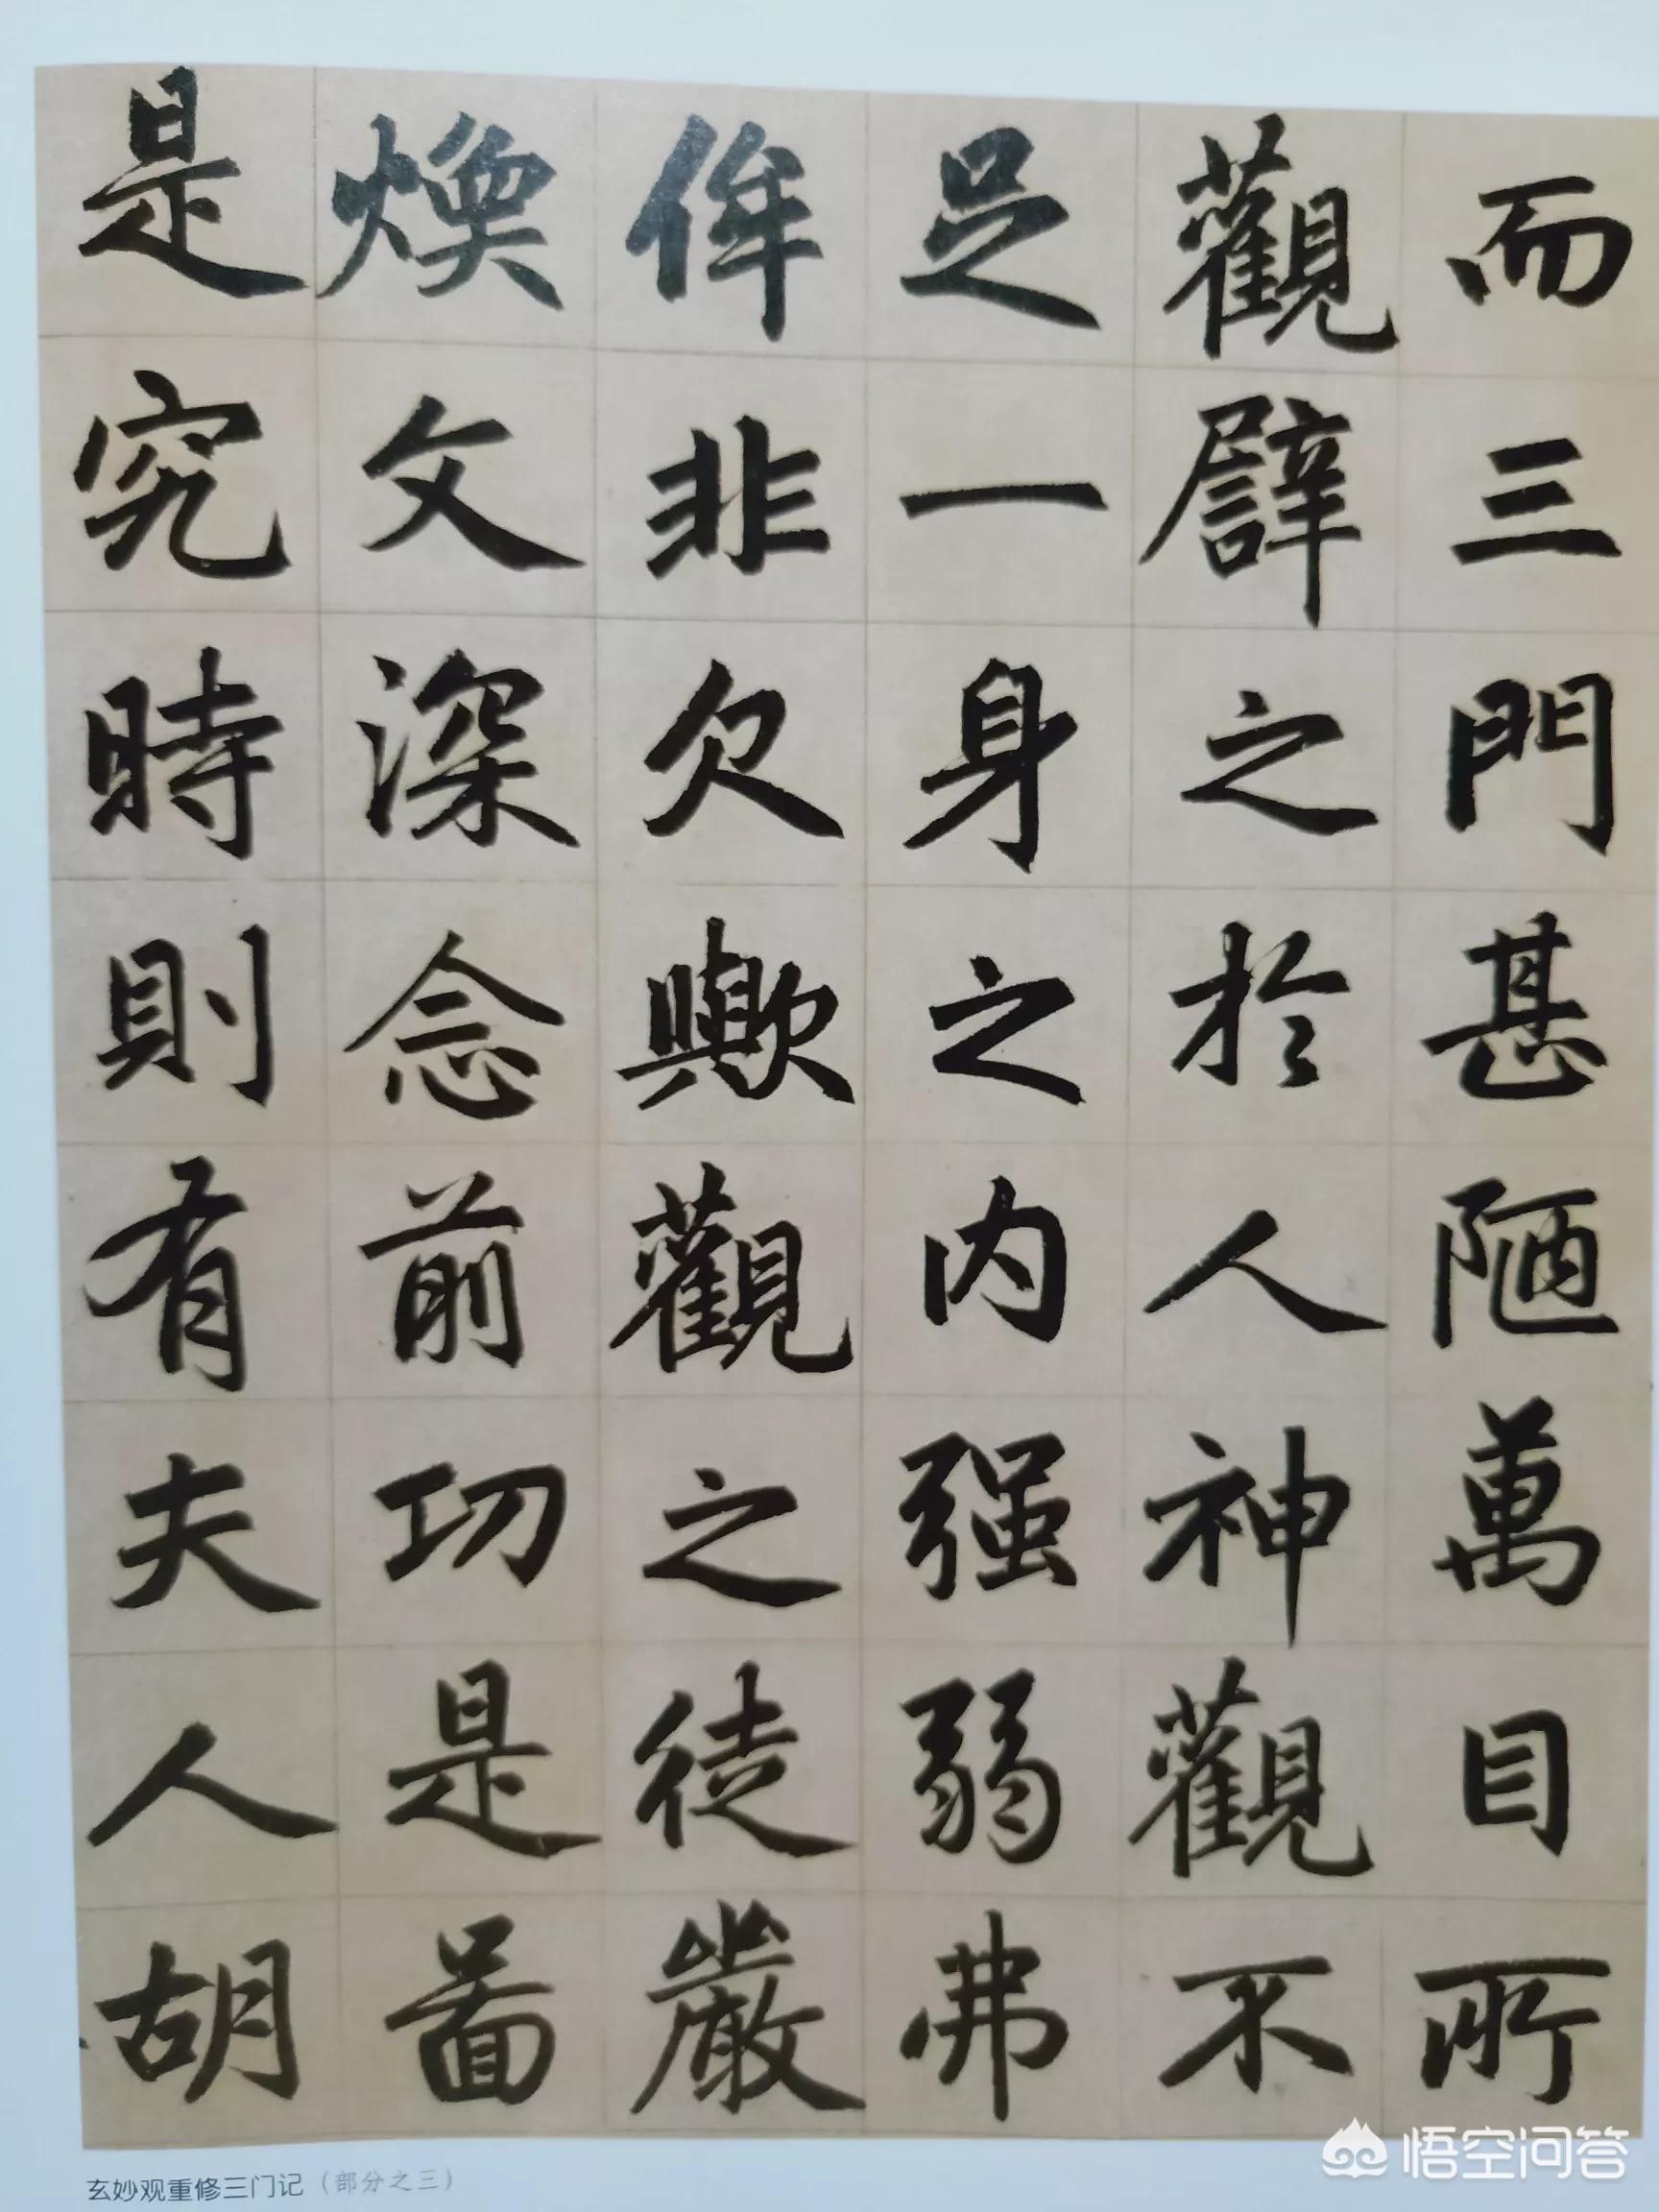 而三門甚陋萬目所
觀譬之於人神觀不
足一身之内强弱弗
侔非欠歟觀之徒嚴
煥文深念前功是啚
是究時則有夫人胡
玄妙观重修三门记（部分之三）
悟空问答